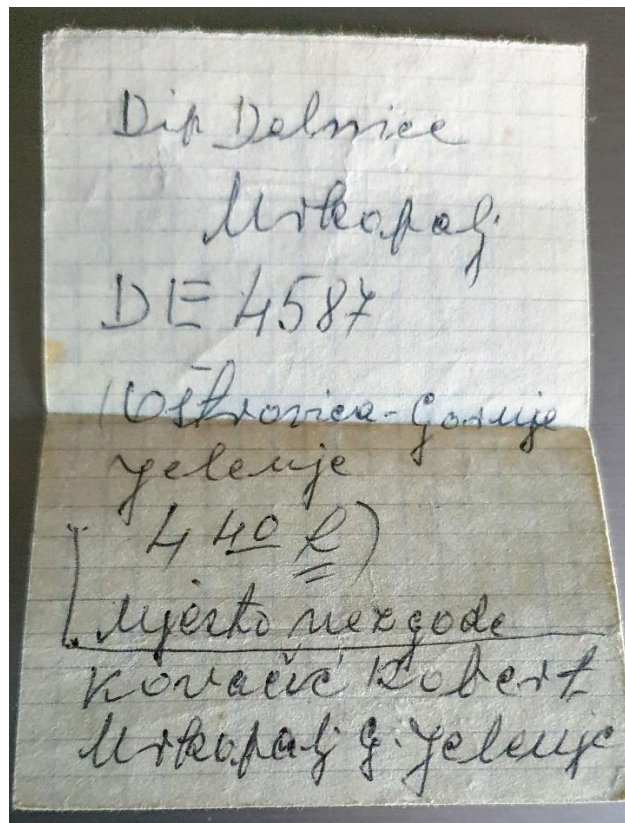 Dip Delnice
Mrkopalj
DE 4587
(Oštrovica-Gornje
Jelenje
4 40 h)
Mjesto nezgode
Kovačić Robert
Mrkopalj G. Jelenje